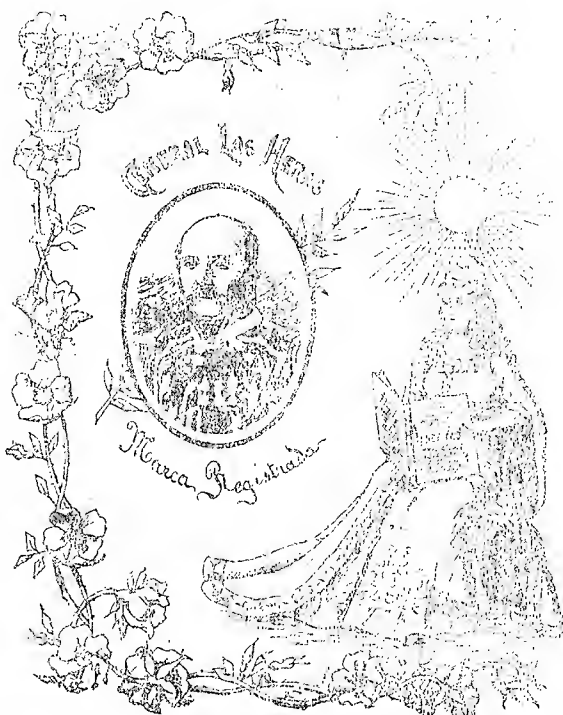 General Las Heras
Marca Registrada